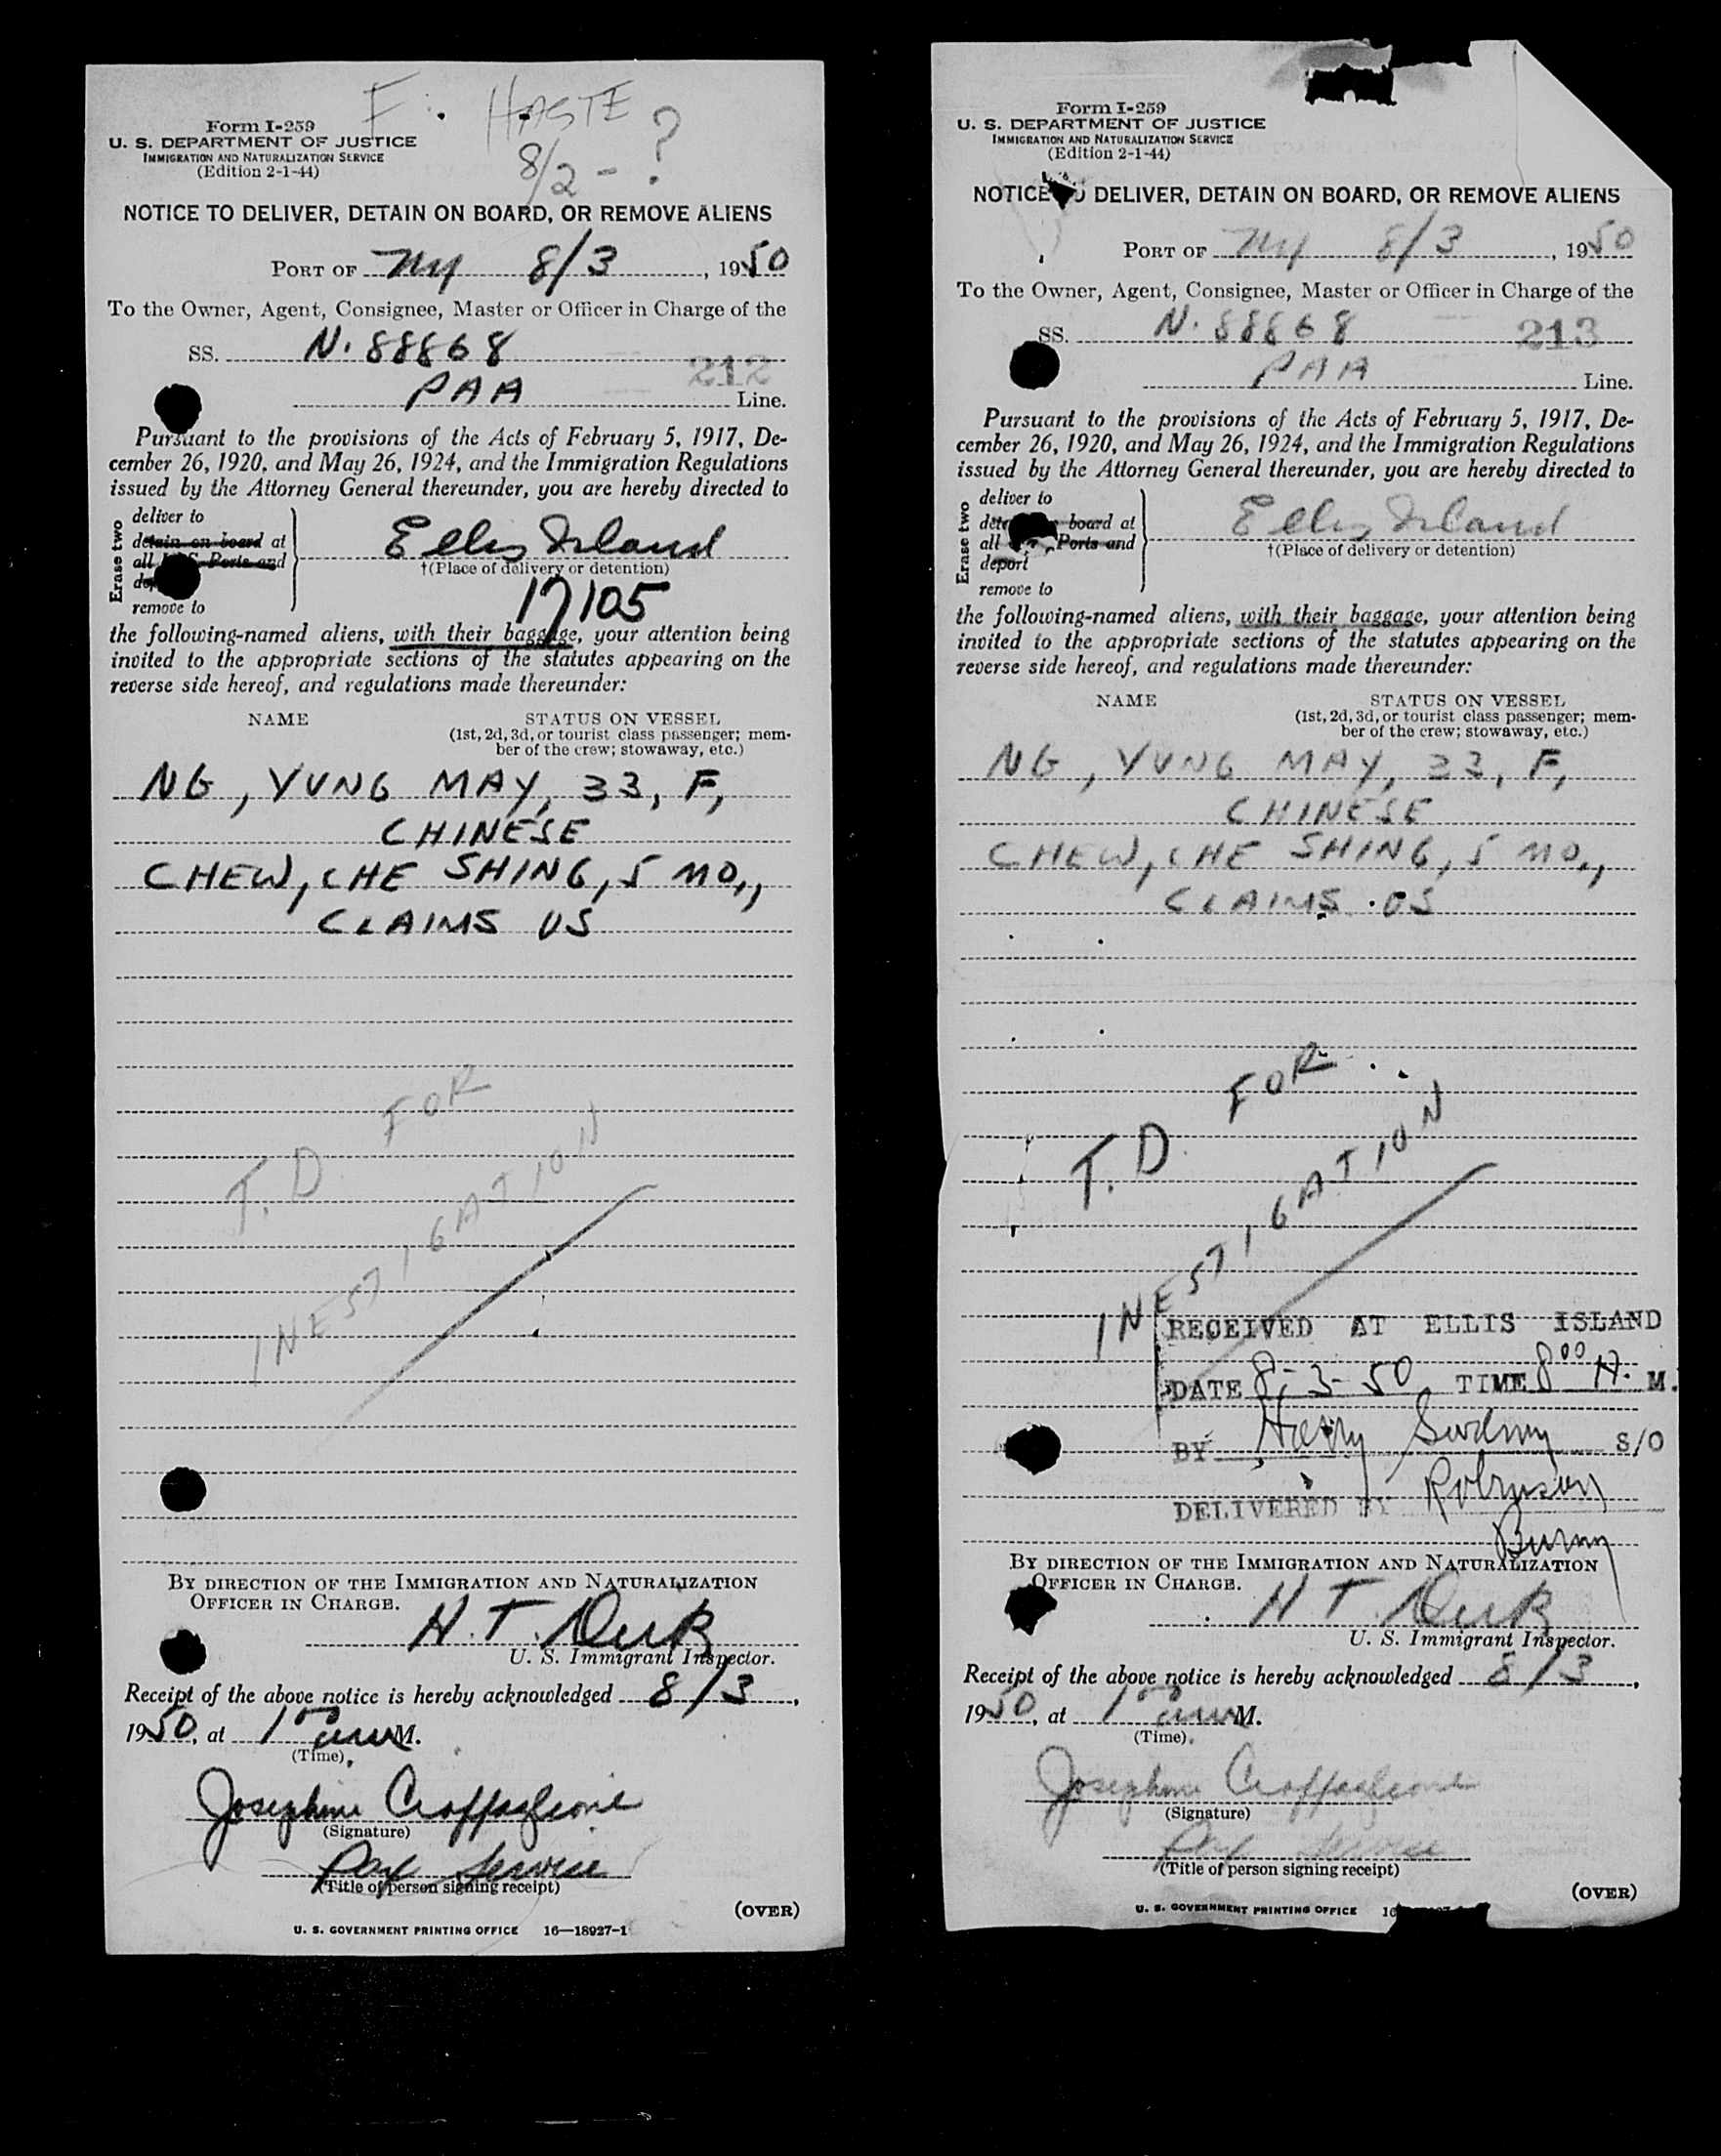 F. HASTE
8/2 - ?
Form I-259
U. S. DEPARTMENT OF JUSTICE
IMMIGRATION AND NATURALIZATION SERVICE
(Edition 2-1-44)
NOTICE TO DELIVER, DETAIN ON BOARD, OR REMOVE ALIENS
PORT OF NY 8/3, 1950
To the Owner, Agent, Consignee, Master or Officer in Charge of the
SS. N. 88868
212
PAA Line.
Pursuant to the provisions of the Acts of February 5, 1917, De-
cember 26, 1920, and May 26, 1924, and the Immigration Regulations
issued by the Attorney General thereunder, you are hereby directed to
Erase two
deliver to
detain on board at
all U.S. Ports and
remove to
Ellis Island
†(Place of delivery or detention)
17105
the following-named aliens, with their baggage, your attention being
invited to the appropriate sections of the statutes appearing on the
reverse side hereof, and regulations made thereunder:
NAME STATUS ON VESSEL
(1st, 2d, 3d, or tourist class passenger; mem-
ber of the crew; stowaway, etc.)
NG, YUNG MAY, 33, F,
CHINESE
CHEW, CHE SHING, 5 MO.,
CLAIMS US
T.D. FOR
INESTIGATION
BY DIRECTION OF THE IMMIGRATION AND NATURALIZATION
OFFICER IN CHARGE.
H. T.
U. S. Immigrant Inspector.
Receipt of the above notice is hereby acknowledged 8/3,
1950, at 1 00 am M.
(Time)
Josephine
(Signature)
Pax Service
(Title of person signing receipt)
(OVER)
U. S. GOVERNMENT PRINTING OFFICE 16—18927-1
Form I-259
U. S. DEPARTMENT OF JUSTICE
IMMIGRATION AND NATURALIZATION SERVICE
(Edition 2-1-44)
NOTICE TO DELIVER, DETAIN ON BOARD, OR REMOVE ALIENS
PORT OF NY 8/3, 1950
To the Owner, Agent, Consignee, Master or Officer in Charge of the
SS. N. 88868 213
PAA Line.
Pursuant to the provisions of the Acts of February 5, 1917, De-
cember 26, 1920, and May 26, 1924, and the Immigration Regulations
issued by the Attorney General thereunder, you are hereby directed to
Erase two
deliver to
board at
all Ports and
deport
remove to
Ellis Island
†(Place of delivery or detention)
the following-named aliens, with their baggage, your attention being
invited to the appropriate sections of the statutes appearing on the
reverse side hereof, and regulations made thereunder:
NAME STATUS ON VESSEL
(1st, 2d, 3d, or tourist class passenger; mem-
ber of the crew; stowaway, etc.)
NG, YUNG MAY, 33, F,
CHINESE
CHEW, CHE SHING, 5 MO.,
CLAIMS US
T.D. FOR
INESTIGATION
RECEIVED AT ELLIS ISLAND
DATE 8-3-50 TIME 8 00 A. M.
BY Harry S/O
DELIVERED BY Robinson
BY DIRECTION OF THE IMMIGRATION AND NATURALIZATION
OFFICER IN CHARGE.
H T
U. S. Immigrant Inspector.
Receipt of the above notice is hereby acknowledged 8/3,
1950, at 1 00 am M.
(Time)
Josephine
(Signature)
Pax Service
(Title of person signing receipt)
(OVER)
U. S. GOVERNMENT PRINTING OFFICE